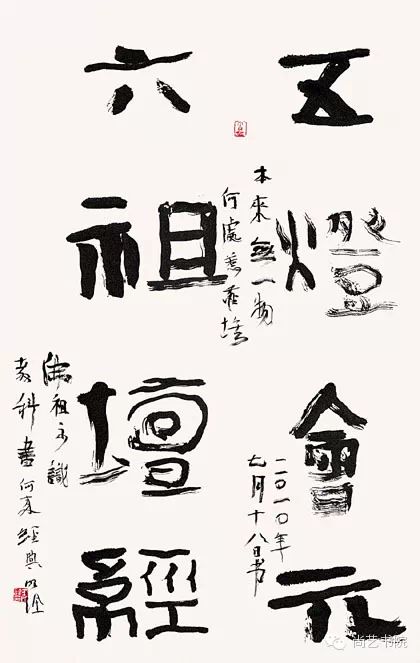 五燈會元
本來無一物
何處惹塵埃
二〇一〇年
七月十八日书
六祖壇經
佛祖不識
教科書何來經典
尚艺书院